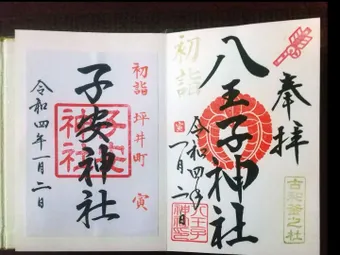 奉拝
八王子神社
初詣
令和四年一月二日
八王子神社
初詣 坪井町 寅
子安神社
子安神社
令和四年一月二日